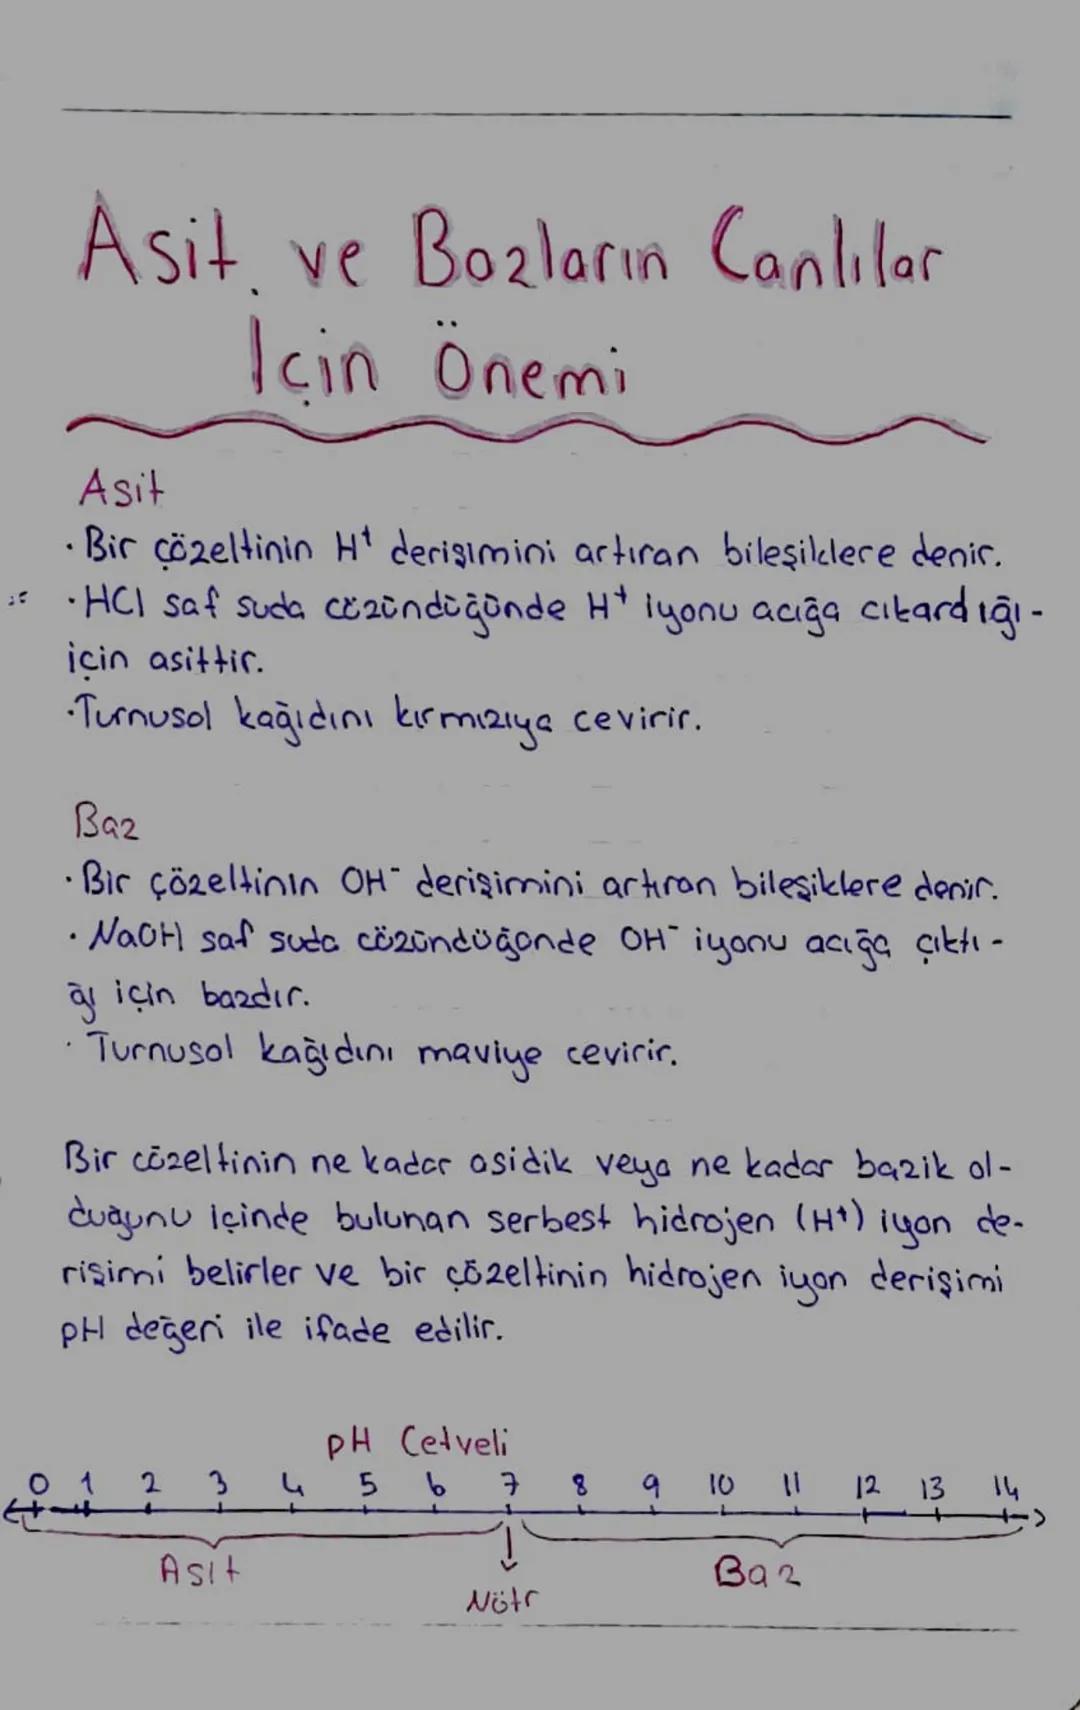 Asit ve Bazların Canlılar
İçin Önemi
Asit
· Bir çözeltinin H⁺ derişimini artıran bileşiklere denir.
· HCl saf suda çözündüğünde H⁺ iyonu acığa cıkardığı-
için asittir.
· Turnusol kağıdını kırmızıya cevirir.
Baz
· Bir çözeltinin OH⁻ derişimini artıran bileşiklere denir.
· NaOH saf suda cözündüğünde OH⁻ iyonu acığa çıktı-
ğı için bazdır.
· Turnusol kağıdını maviye cevirir.
Bir cözeltinin ne kadar asidik veya ne kadar bazik ol-
duğunu içinde bulunan serbest hidrojen (H⁺) iyon de-
rişimi belirler ve bir çözeltinin hidrojen iyon derişimi
pH değeri ile ifade edilir.
pH Cetveli
0 1 2 3 4 5 6 7 8 9 10 11 12 13 14
Asit Baz
Nötr